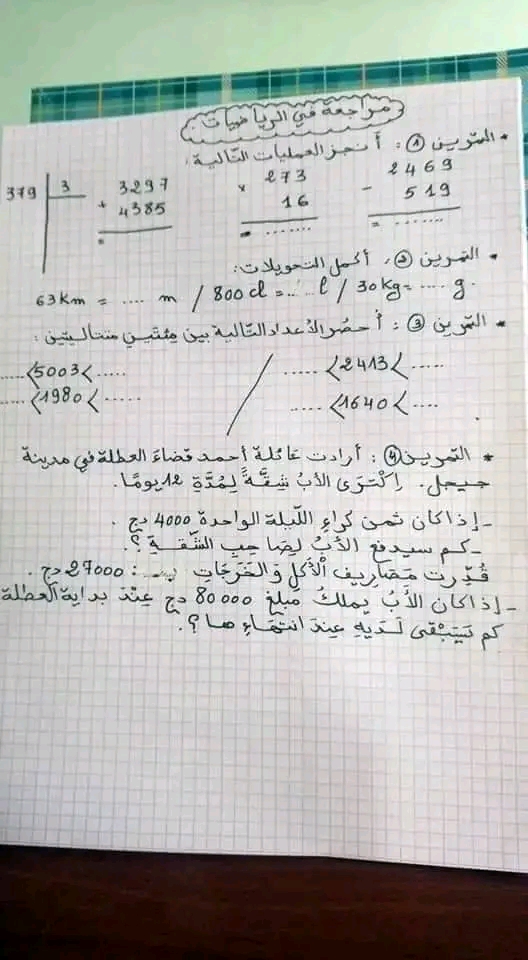 مراجعة في الرياضيات:
* التمرين ①: أنجز العمليات التالية:
2469 - 519 = .......
273 × 16 = .......
3297 + 4385 =
379 | 3
* التمرين ②: أكمل التحويلات:
63 Km = .... m / 800 cl = .... l / 30 Kg = .... g.
* التمرين ③: أحصُر الأعداد التالية بين مئتين متتاليتين:
..... < 2413 < ..... / ..... < 5003 < .....
..... < 1640 < ..... / ..... < 1980 < .....
* التمرين ④: أرادت عائلة أحمد قضاءَ العطلة في مدينة
جيجل. اِكْتَرَى الأبُ شقّةً لِمُدَّةِ 12 يومًا.
- إذا كان ثمن كراءِ اللّيلة الواحدة 4000 دج.
- كم سيدفع الأبُ لِصاحبِ الشّقةِ؟.
قُدِّرت مَصَاريف الْأكلِ وَالخَرَجَاتِ بـ: 27000 دج.
- إذا كان الأبُ يملكُ مبلغ 80000 دج عِنْدَ بداية العطلة
كم سَيَبْقى لَدَيهِ عِندَ انتهَاءِها؟.